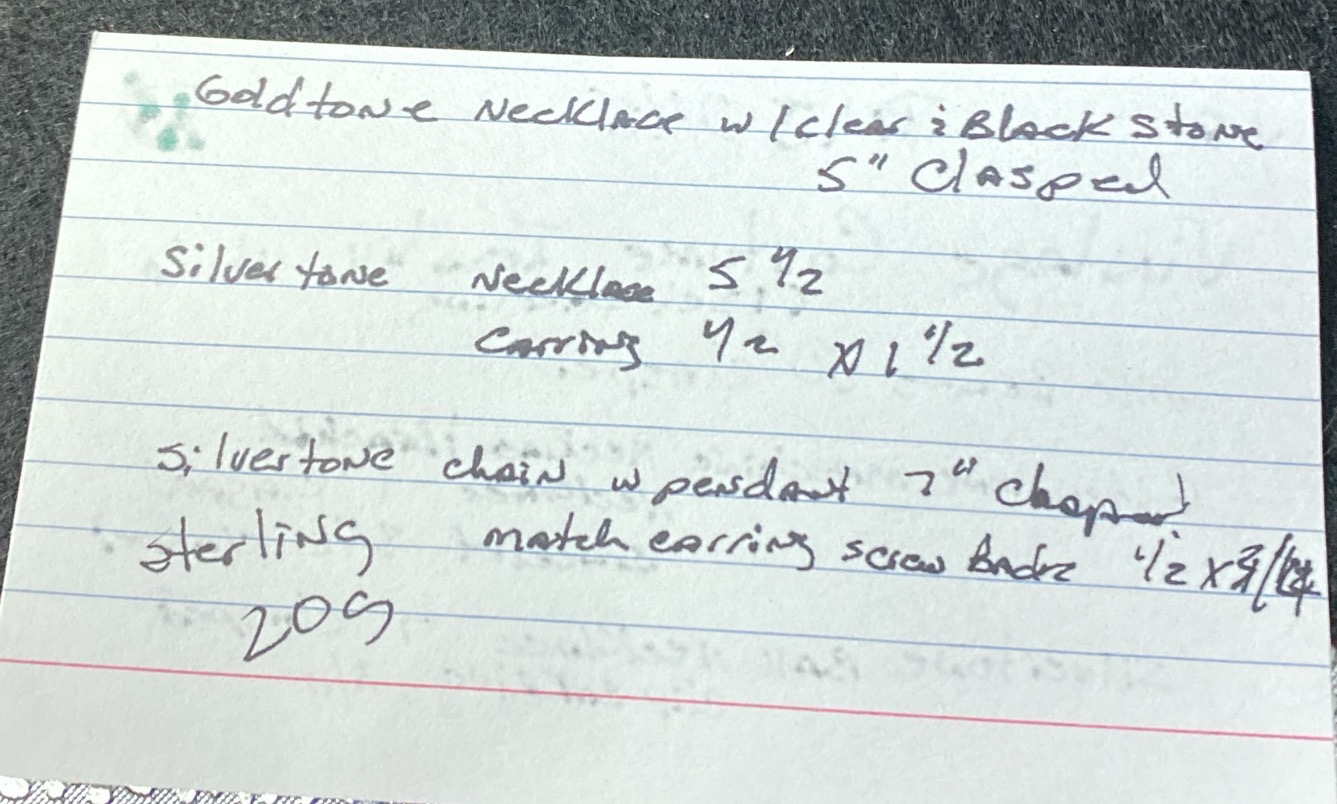 Goldtone Necklace w/clear & Black Stone
5" Clasped
Silvertone Necklace 5 1/2
Earring 1/2 x 1 1/2
Silvertone chain w pendant 7"
Sterling match earring screw backs 1/2 x
20g